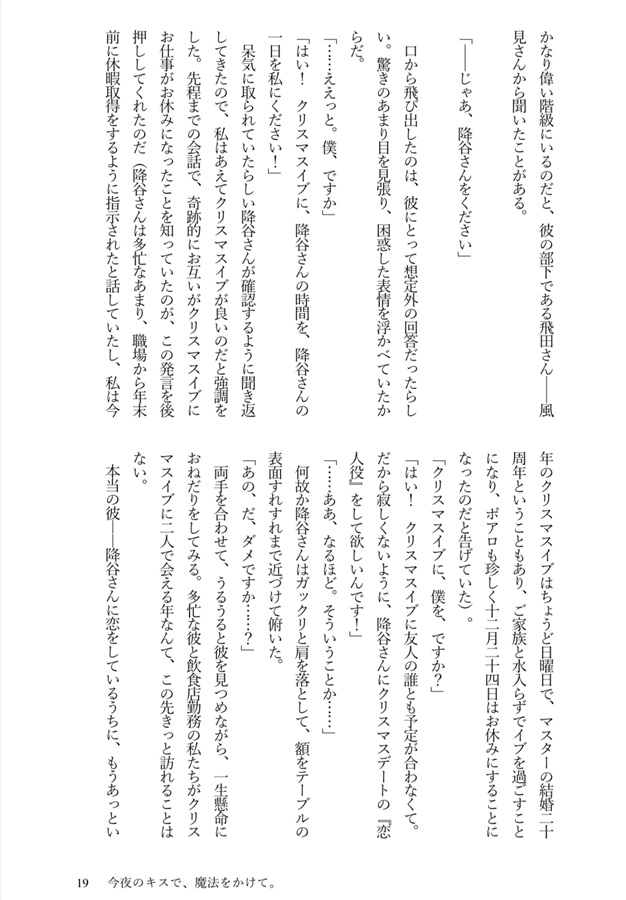 かなり偉い階級にいるのだと、彼の部下である飛田さん――風
見さんから聞いたことがある。
「――じゃあ、降谷さんをください」
口から飛び出したのは、彼にとって想定外の回答だったらし
い。驚きのあまり目を見張り、困惑した表情を浮かべていたか
らだ。
「……ええっと。僕、ですか」
「はい！　クリスマスイブに、降谷さんの時間を、降谷さんの
一日を私にください！」
呆気に取られていたらしい降谷さんが確認するように聞き返
してきたので、私はあえてクリスマスイブが良いのだと強調を
した。先程までの会話で、奇跡的にお互いがクリスマスイブに
お仕事がお休みになったことを知っていたのが、この発言を後
押ししてくれたのだ（降谷さんは多忙なあまり、職場から年末
前に休暇取得をするように指示されたと話していたし、私は今
年のクリスマスイブはちょうど日曜日で、マスターの結婚二十
周年ということもあり、ご家族と水入らずでイブを過ごすこと
になり、ポアロも珍しく十二月二十四日はお休みにすることに
なったのだと告げていた）。
「クリスマスイブに、僕を、ですか？」
「はい！　クリスマスイブに友人の誰とも予定が合わなくて。
だから寂しくないように、降谷さんにクリスマスデートの『恋
人役』をして欲しいんです！」
「……ああ、なるほど。そういうことか……」
何故か降谷さんはガックリと肩を落として、額をテーブルの
表面すれすれまで近づけて俯いた。
「あの、だ、ダメですか……？」
両手を合わせて、うるうると彼を見つめながら、一生懸命に
おねだりをしてみる。多忙な彼と飲食店勤務の私たちがクリス
マスイブに二人で会える年なんて、この先きっと訪れることは
ない。
本当の彼――降谷さんに恋をしているうちに、もうあっとい
19　今夜のキスで、魔法をかけて。